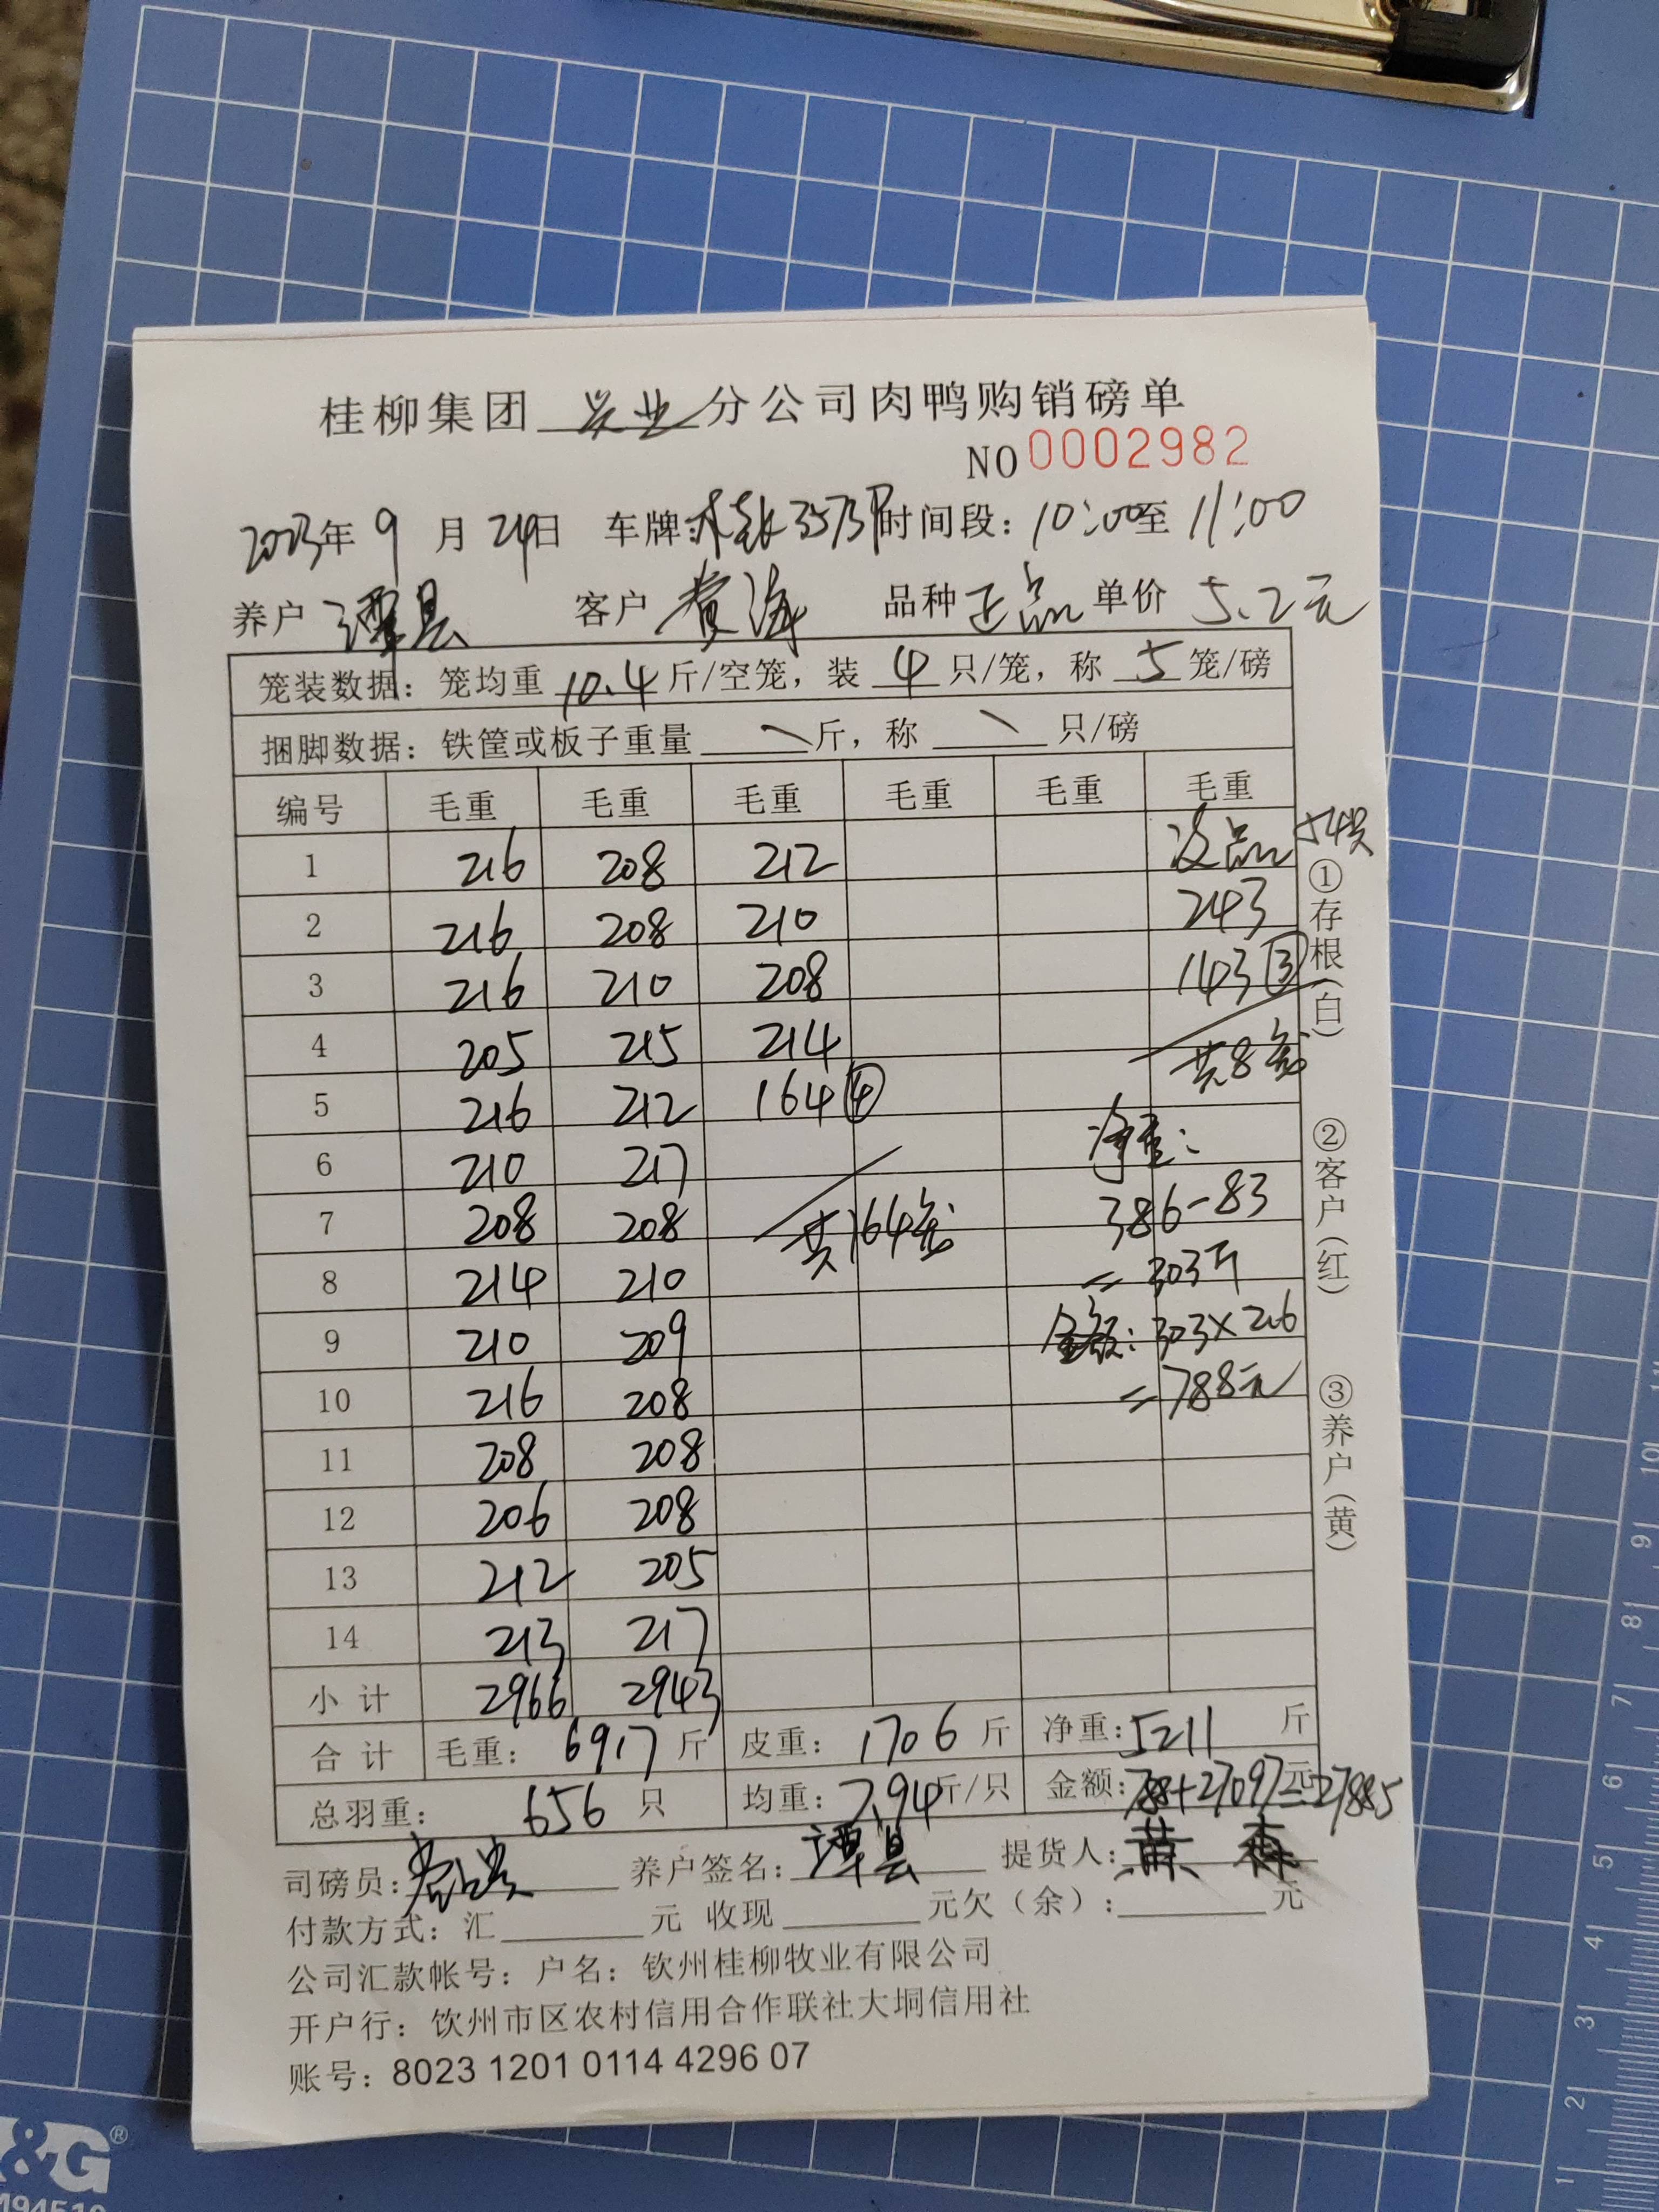 桂柳集团 兴业 分公司肉鸭购销磅单
NO 0002982
2023年 9 月 24日 车牌: 时间段: 10:00至 11:00
养户 谭县 客户 黄海 品种 正品 单价 5.2元
笼装数据: 笼均重 10.4 斤/空笼, 装 4 只/笼, 称 5 笼/磅
捆脚数据: 铁筐或板子重量 \ 斤, 称 \ 只/磅
编号 毛重 毛重 毛重 毛重 毛重 毛重
1 216 208 212 次品 54只
2 216 208 210 243
3 216 210 208 143 ③
4 205 215 214 共8笼
5 216 212 164 ④
6 210 217 净重:
7 208 208 共164笼 386-83
8 214 210 =303斤
9 210 209 金额: 303×2.6
10 216 208 =788元
11 208 208
12 206 208
13 212 205
14 213 217
小计 2966 2943
合计 毛重: 6917 斤 皮重: 1706 斤 净重: 5211 斤
总羽重: 656 只 均重: 7.94斤/只 金额: 788+27097元=27885
司磅员: 养户签名: 谭县 提货人: 黄森
付款方式: 汇 元 收现 元欠(余): 元
公司汇款帐号: 户名: 钦州桂柳牧业有限公司
开户行: 钦州市区农村信用合作联社大垌信用社
账号: 8023 1201 0114 4296 07
①存根(白) ②客户(红) ③养户(黄)
&G®
1 2 3 4 5 6 7 8 9 10 11